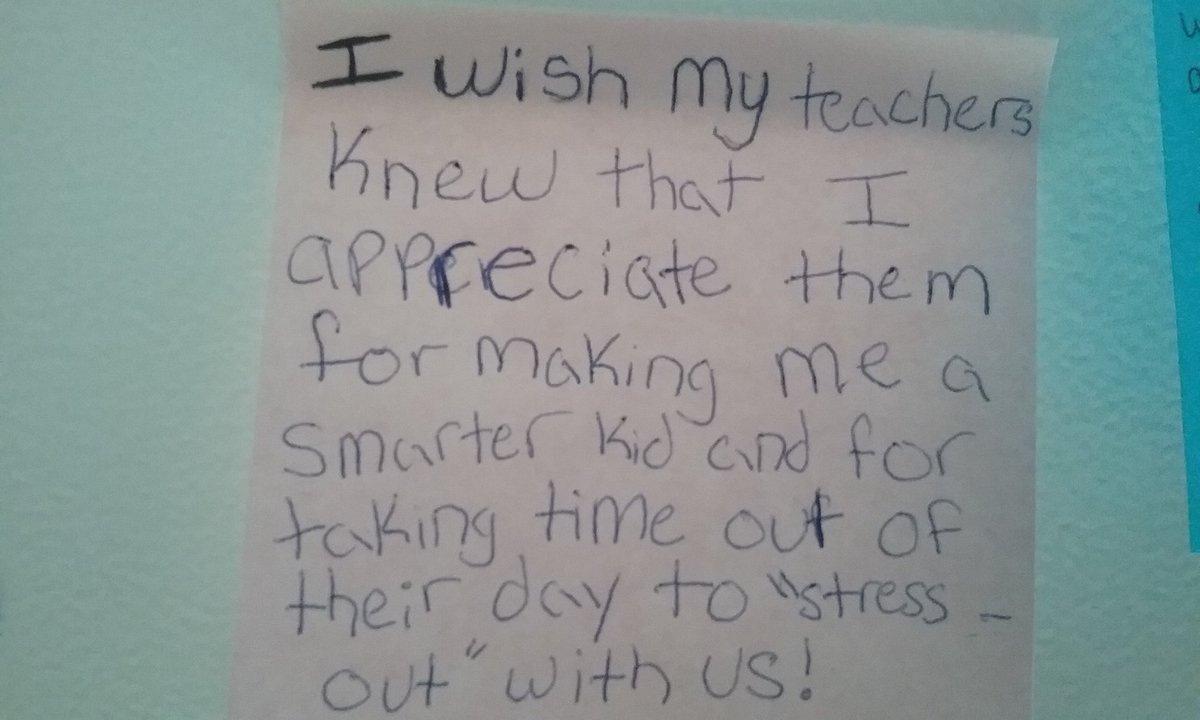 I wish my teachers
knew that I
appreciate them
for making me a
smarter kid and for
taking time out of
their day to "stress -
out" with us!